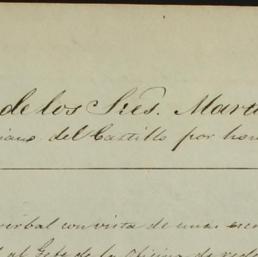 de los Sres. Mart
iano del Castillo por hon
verbal con vista de unas escri
el Gefe de la oficina de rede